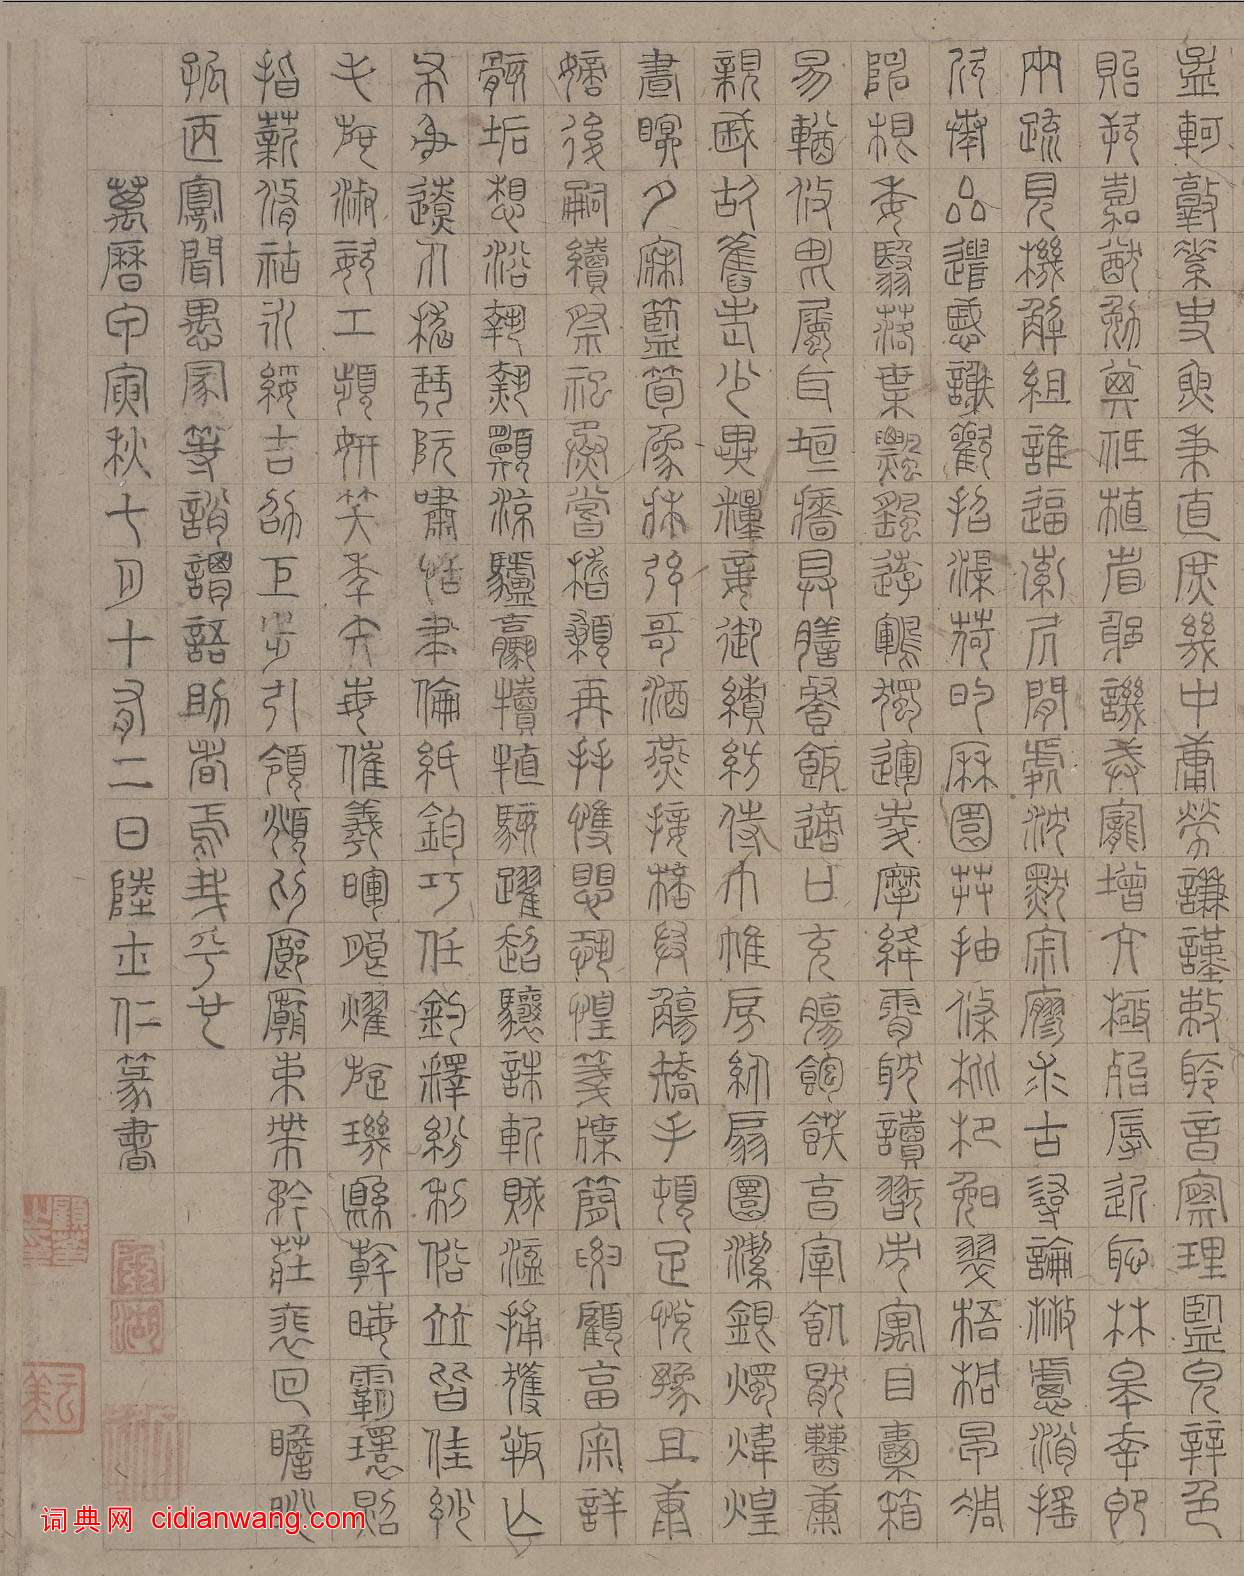 孟軻敦素史魚秉直庶幾中庸勞謙謹敕聆音察理鑒皃辨色
貽厥嘉猷勉其祗植省躬譏誡寵增亢極殆辱近恥林皋幸即
兩疏見機解組誰逼索居閒處沈默寂寥求古尋論散慮逍遙
欣奏累遣慼謝歡招渠荷的歷園莽抽條枇杷晚翠梧桐早凋
陳根委翳落葉飄颻遊鵾獨運凌摩絳霄耽讀翫市寓目囊箱
易輶攸畏屬耳垣牆具膳餐飯適口充腸飽飫享宰飢厭糟糠
親戚故舊老少異糧妾御績紡侍巾帷房紈扇圓潔銀燭煒煌
晝瞑夕寐藍筍象床弦歌酒讌接杯舉觴矯手頓足悅豫且康
嫡後嗣續祭祀烝嘗稽顙再拜悚懼恐惶牋牒簡要顧答審詳
骸垢想浴執熱願涼驢騾犢特駭躍超驤誅斬賊盜捕獲叛亡
布射遼丸嵇琴阮嘯恬筆倫紙鈞巧任釣釋紛利俗並皆佳妙
毛施淑姿工顰妍笑年矢每催羲暉朗耀旋璣懸斡晦魄環照
指薪修祜永綏吉劭矩步引領俯仰廊廟束帶矜莊徘徊瞻眺
孤陋寡聞愚蒙等誚謂語助者焉哉乎也
萬曆甲寅秋七月十有二日陸士仁篆書
词典网 cidianwang.com